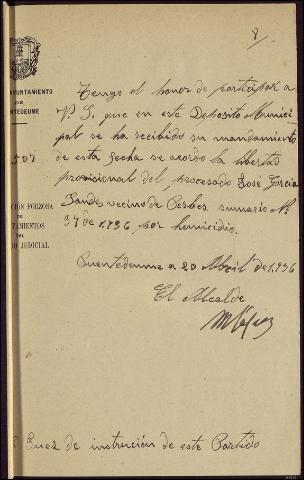 8
AYUNTAMIENTO
DE
NTEDEUME
Tengo el honor de participar a
V. S. que en este Deposito Munici
pal se ha recibido su mandamiento
507
de esta fecha se acordo la libertad
provisional del procesado José Garcia
CIÓN FORZOSA
DE
TAMIENTOS
DEL
O JUDICIAL
vecino de Perbes, sumario Nº
37 de 1.936, por homicidio.
Puentedeume a 20 Abril de 1.936
El Alcalde
Juez de instrución de este Partido